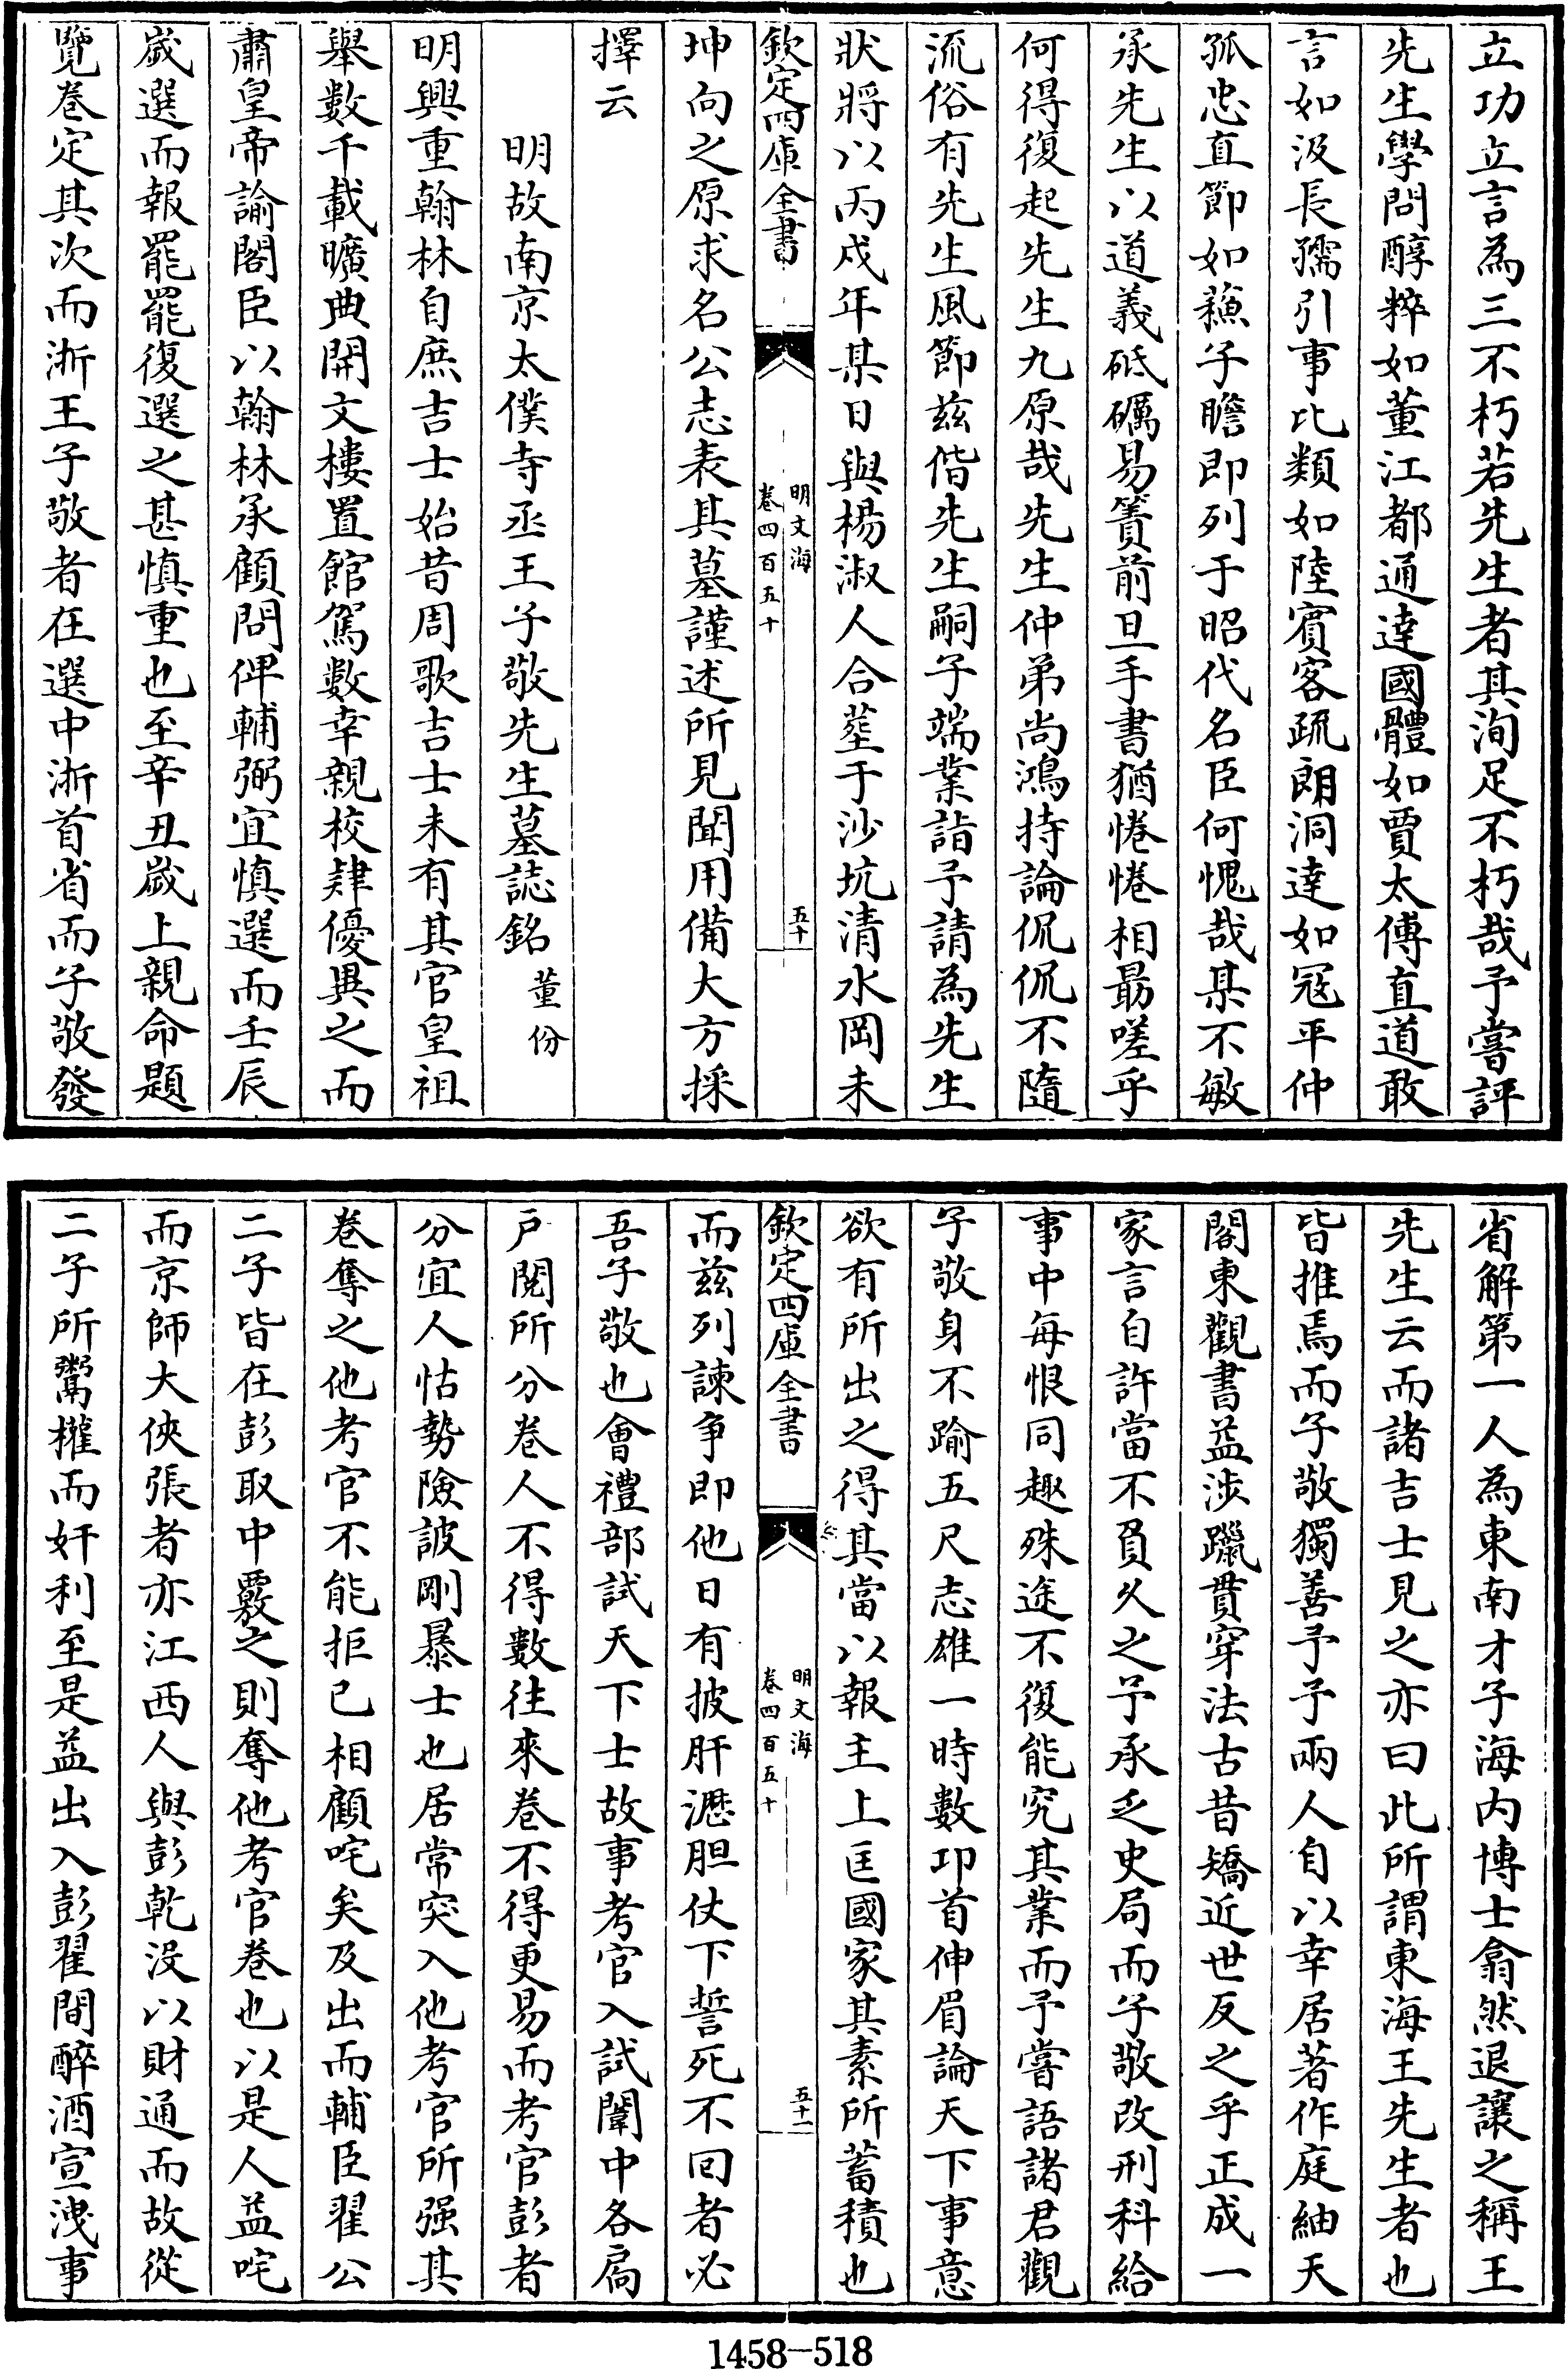 立功立言為三不朽若先生者其洵足不朽哉予嘗評
先生學問醇粹如董江都通達國體如賈太傅直道敢
言如汲長孺引事比類如陸賓客疏朗洞達如冦平仲
孤忠直節如蘓子瞻即列于昭代名臣何愧哉某不敏
承先生以道義砥礪易簀前旦手書猶惓惓相朂嗟乎
何得復起先生九原哉先生仲弟尚鴻持論侃侃不隨
流俗有先生風節兹偕先生嗣子端業詣予請為先生
狀將以丙戍年某日與楊淑人合塟于沙坑清水岡未
欽定四庫全書
明文海
卷四百五十
五十
坤向之原求名公志表其墓謹述所見聞用備大方採
擇云
明故南京太僕寺丞王子敬先生墓誌銘 董份
明興重翰林自庶吉士始昔周歌吉士未有其官皇祖
舉數千載曠典開文樓置館駕數幸親校肄優異之而
肅皇帝諭閣臣以翰林承顧問俾輔弼宜慎選而壬辰
歲選而報罷罷復選之甚慎重也至辛丑歲上親命題
覽卷定其次而浙王子敬者在選中浙首省而子敬發
省解第一人為東南才子海内博士翕然退讓之稱王
先生云而諸吉士見之亦曰此所謂東海王先生者也
皆推焉而子敬獨善予予兩人自以幸居著作庭紬天
閣東觀書益涉躐貫穿法古昔矯近世反之乎正成一
家言自許當不負久之予承乏史局而子敬改刑科給
事中每恨同趣殊途不復能究其業而予嘗語諸君觀
子敬身不踰五尺志雄一時數卬首伸眉論天下事意
欲有所出之得其當以報主上匡國家其素所蓄積也
欽定四庫全書
明文海
卷四百五十
五十一
而兹列諫争即他日有披肝瀝胆仗下誓死不囘者必
吾子敬也會禮部試天下士故事考官入試闈中各扃
戶閱所分卷人不得數往來卷不得更易而考官彭者
分宜人怙勢險詖剛暴士也居常突入他考官所强其
卷奪之他考官不能拒已相顧咤矣及出而輔臣翟公
二子皆在彭取中覈之則奪他考官卷也以是人益咤
而京師大俠張者亦江西人與彭乾没以財通而故從
二子所鬻權而奸利至是益出入彭翟間醉酒宣洩事
1458-518